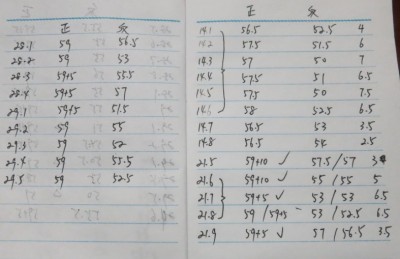 正 反
28.1 59 56.5
28.2 59 53
28.3 59+5 55.5
28.4 59+5 57
29.1 59+5 51.5
29.2 59 55
29.3 59 52
29.4 59 55.5
29.5 59 52.5
正 反
14.1 56.5 52.5 4
14.2 57.5 51.5 6
14.3 57 50 7
14.4 57.5 51 6.5
14.5 57.5 50 7.5
14.6 58 52.5 6.5
14.7 56.5 53 3.5
14.8 56.5 54 2.5
21.5 59+10 ✓ 57.5/57 3
21.6 59+10 ✓ 55/55 5
21.7 59+5 ✓ 53/53 6.5
21.8 59/59+5 53/52.5 6.5
21.9 59+5 ✓ 57/56.5 3.5